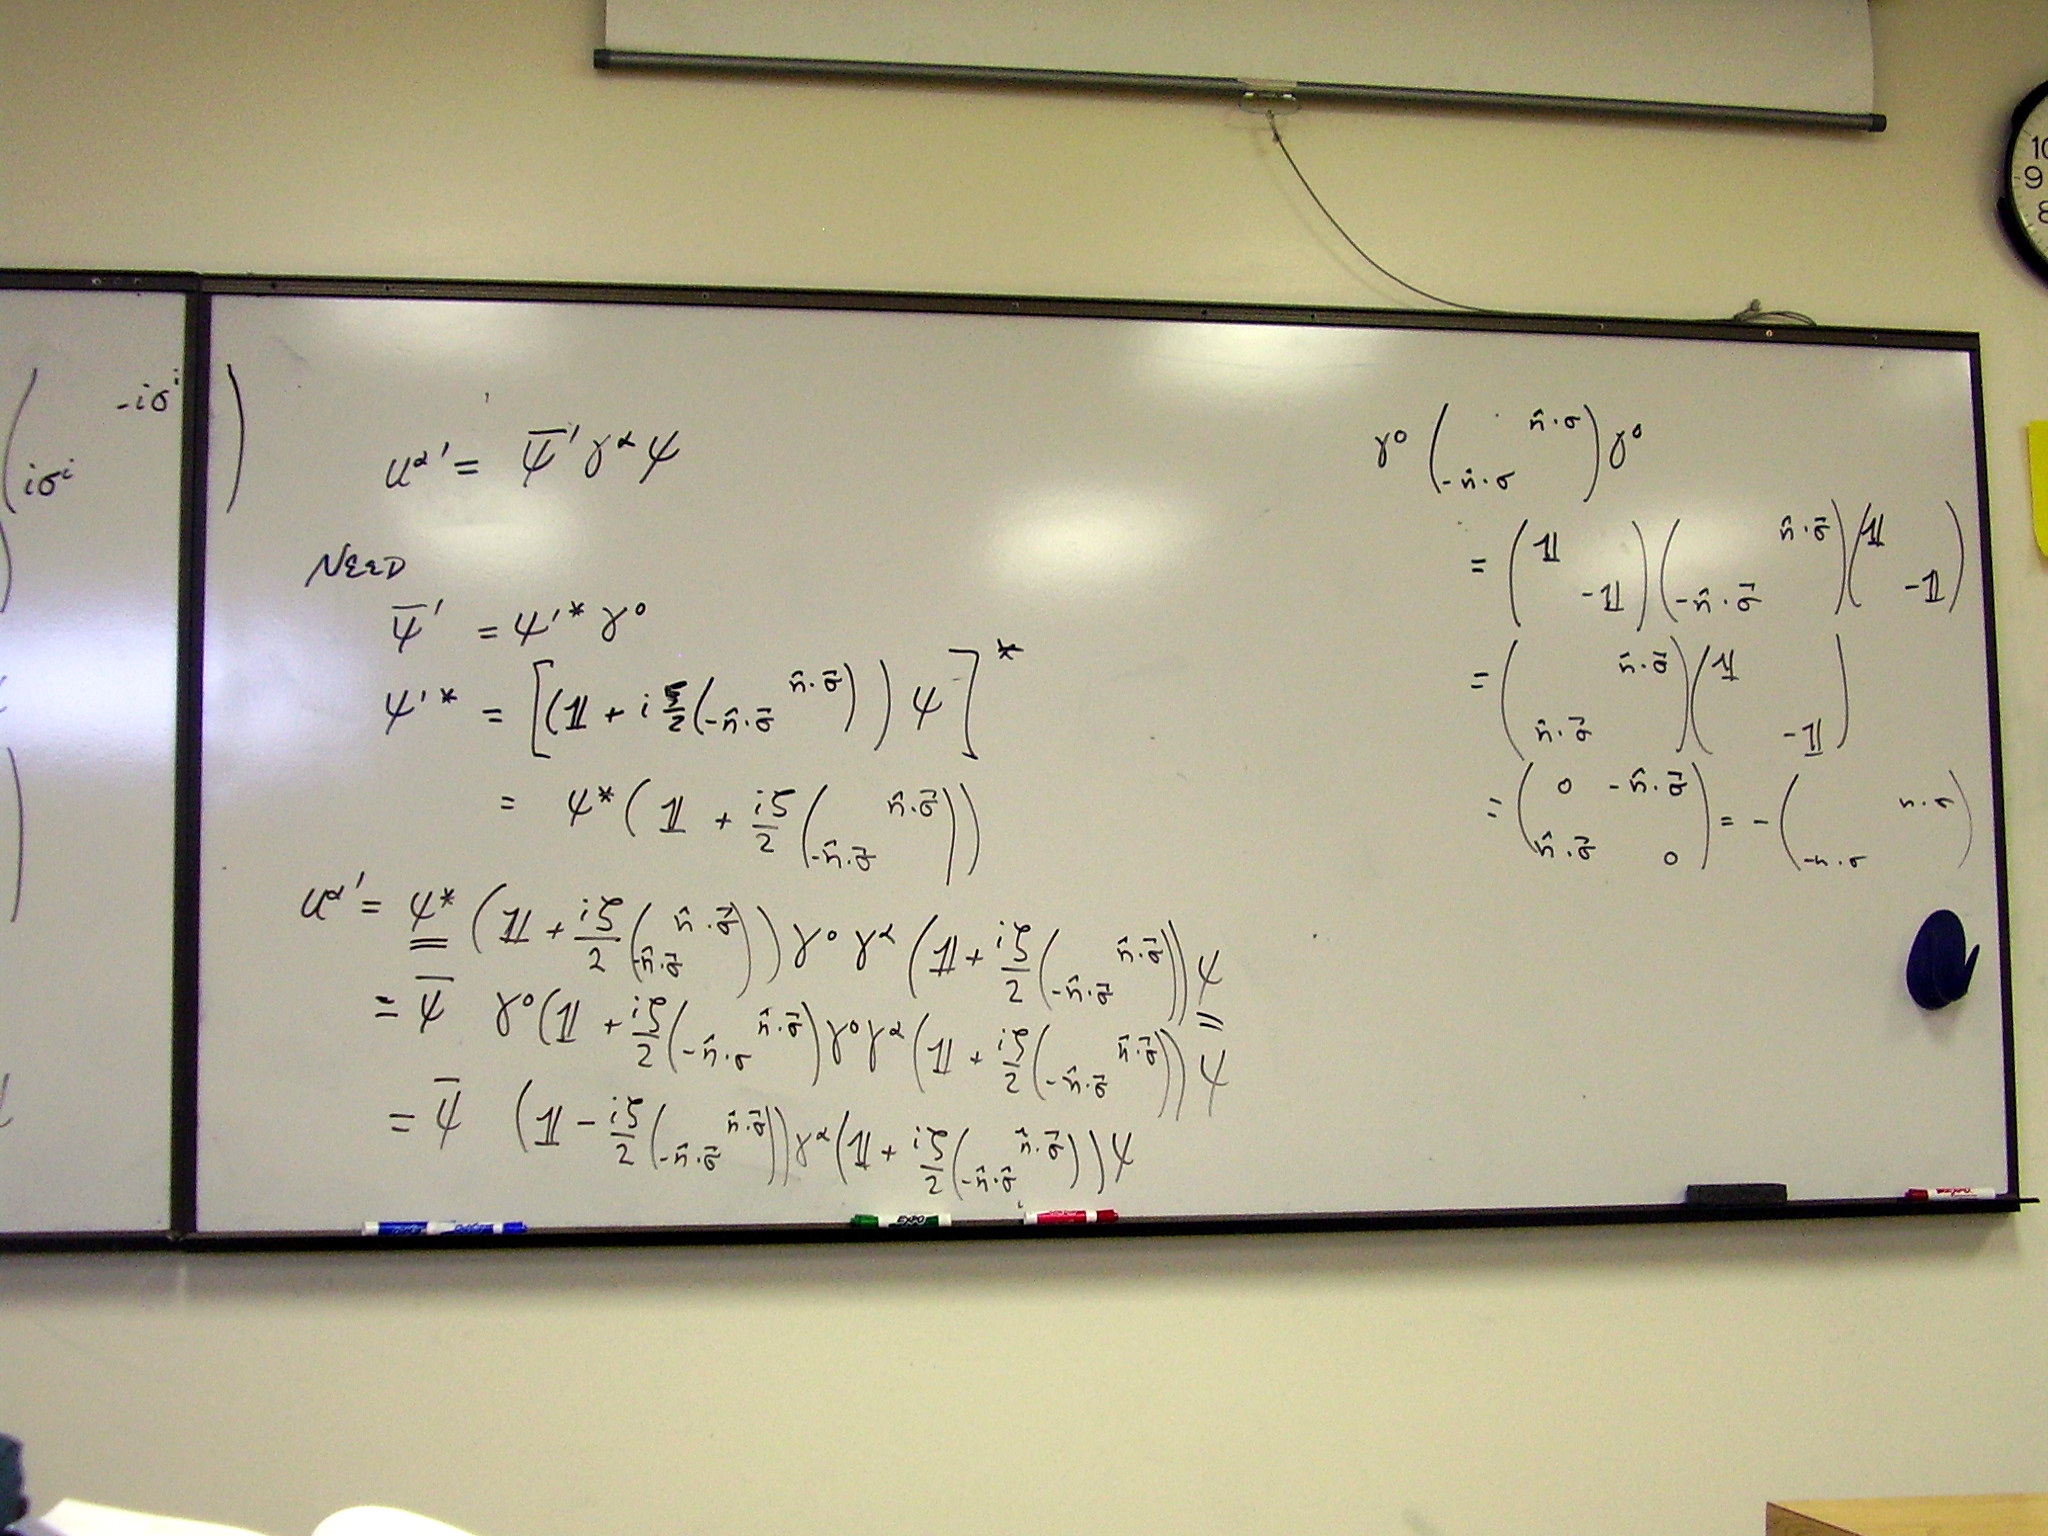 -iσⁱ
iσⁱ
u^α' = ψ̄' γ^α ψ
NEED
ψ̄' = ψ'* γ⁰
ψ'* = [(𝟙 + i ζ/2 ( n̂·σ⃗ ; -n̂·σ⃗ )) ψ]*
= ψ* (𝟙 + iζ/2 ( n̂·σ⃗ ; -n̂·σ⃗ ))
u^α' = ψ* (𝟙 + iζ/2 ( n̂·σ⃗ ; -n̂·σ⃗ )) γ⁰ γ^α (𝟙 + iζ/2 ( n̂·σ⃗ ; -n̂·σ⃗ )) ψ
= ψ̄ γ⁰ (𝟙 + iζ/2 ( n̂·σ⃗ ; -n̂·σ ) γ⁰ γ^α (𝟙 + iζ/2 ( n̂·σ⃗ ; -n̂·σ⃗ )) ψ
= ψ̄ (𝟙 - iζ/2 ( n̂·σ⃗ ; -n̂·σ⃗ )) γ^α (𝟙 + iζ/2 ( n̂·σ⃗ ; -n̂·σ⃗ )) ψ
γ⁰ ( n̂·σ ; -n̂·σ ) γ⁰
= ( 𝟙 ; -𝟙 ) ( n̂·σ⃗ ; -n̂·σ⃗ ) ( 𝟙 ; -𝟙 )
= ( n̂·σ⃗ ; n̂·σ⃗ ) ( 𝟙 ; -𝟙 )
= ( 0 -n̂·σ⃗ ; n̂·σ⃗ 0 ) = - ( n·σ ; -n·σ )
10
9
8
EXPO